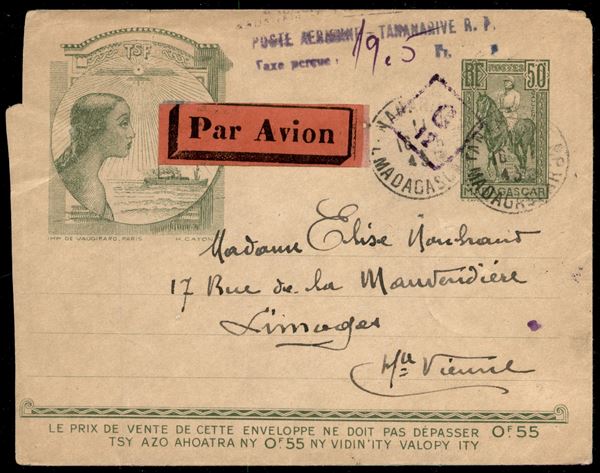 POSTE AERIENNE TANANARIVE R. P.
Taxe perçue : 19.5 Fr.
TSF
RF POSTES 50
Par Avion
MADAGASCAR
IMP. DE VAUGIRARD, PARIS H. CAYON
Madame Elise
17 Rue de la Mauvendière
Limoges
Hte Vienne
LE PRIX DE VENTE DE CETTE ENVELOPPE NE DOIT PAS DÉPASSER 0F.55
TSY AZO AHOATRA NY 0F.55 NY VIDIN'ITY VALOPY ITY